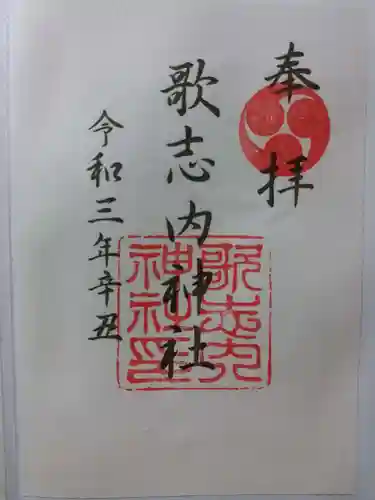 奉拝
歌志内神社
令和三年辛丑
歌志内
神社印